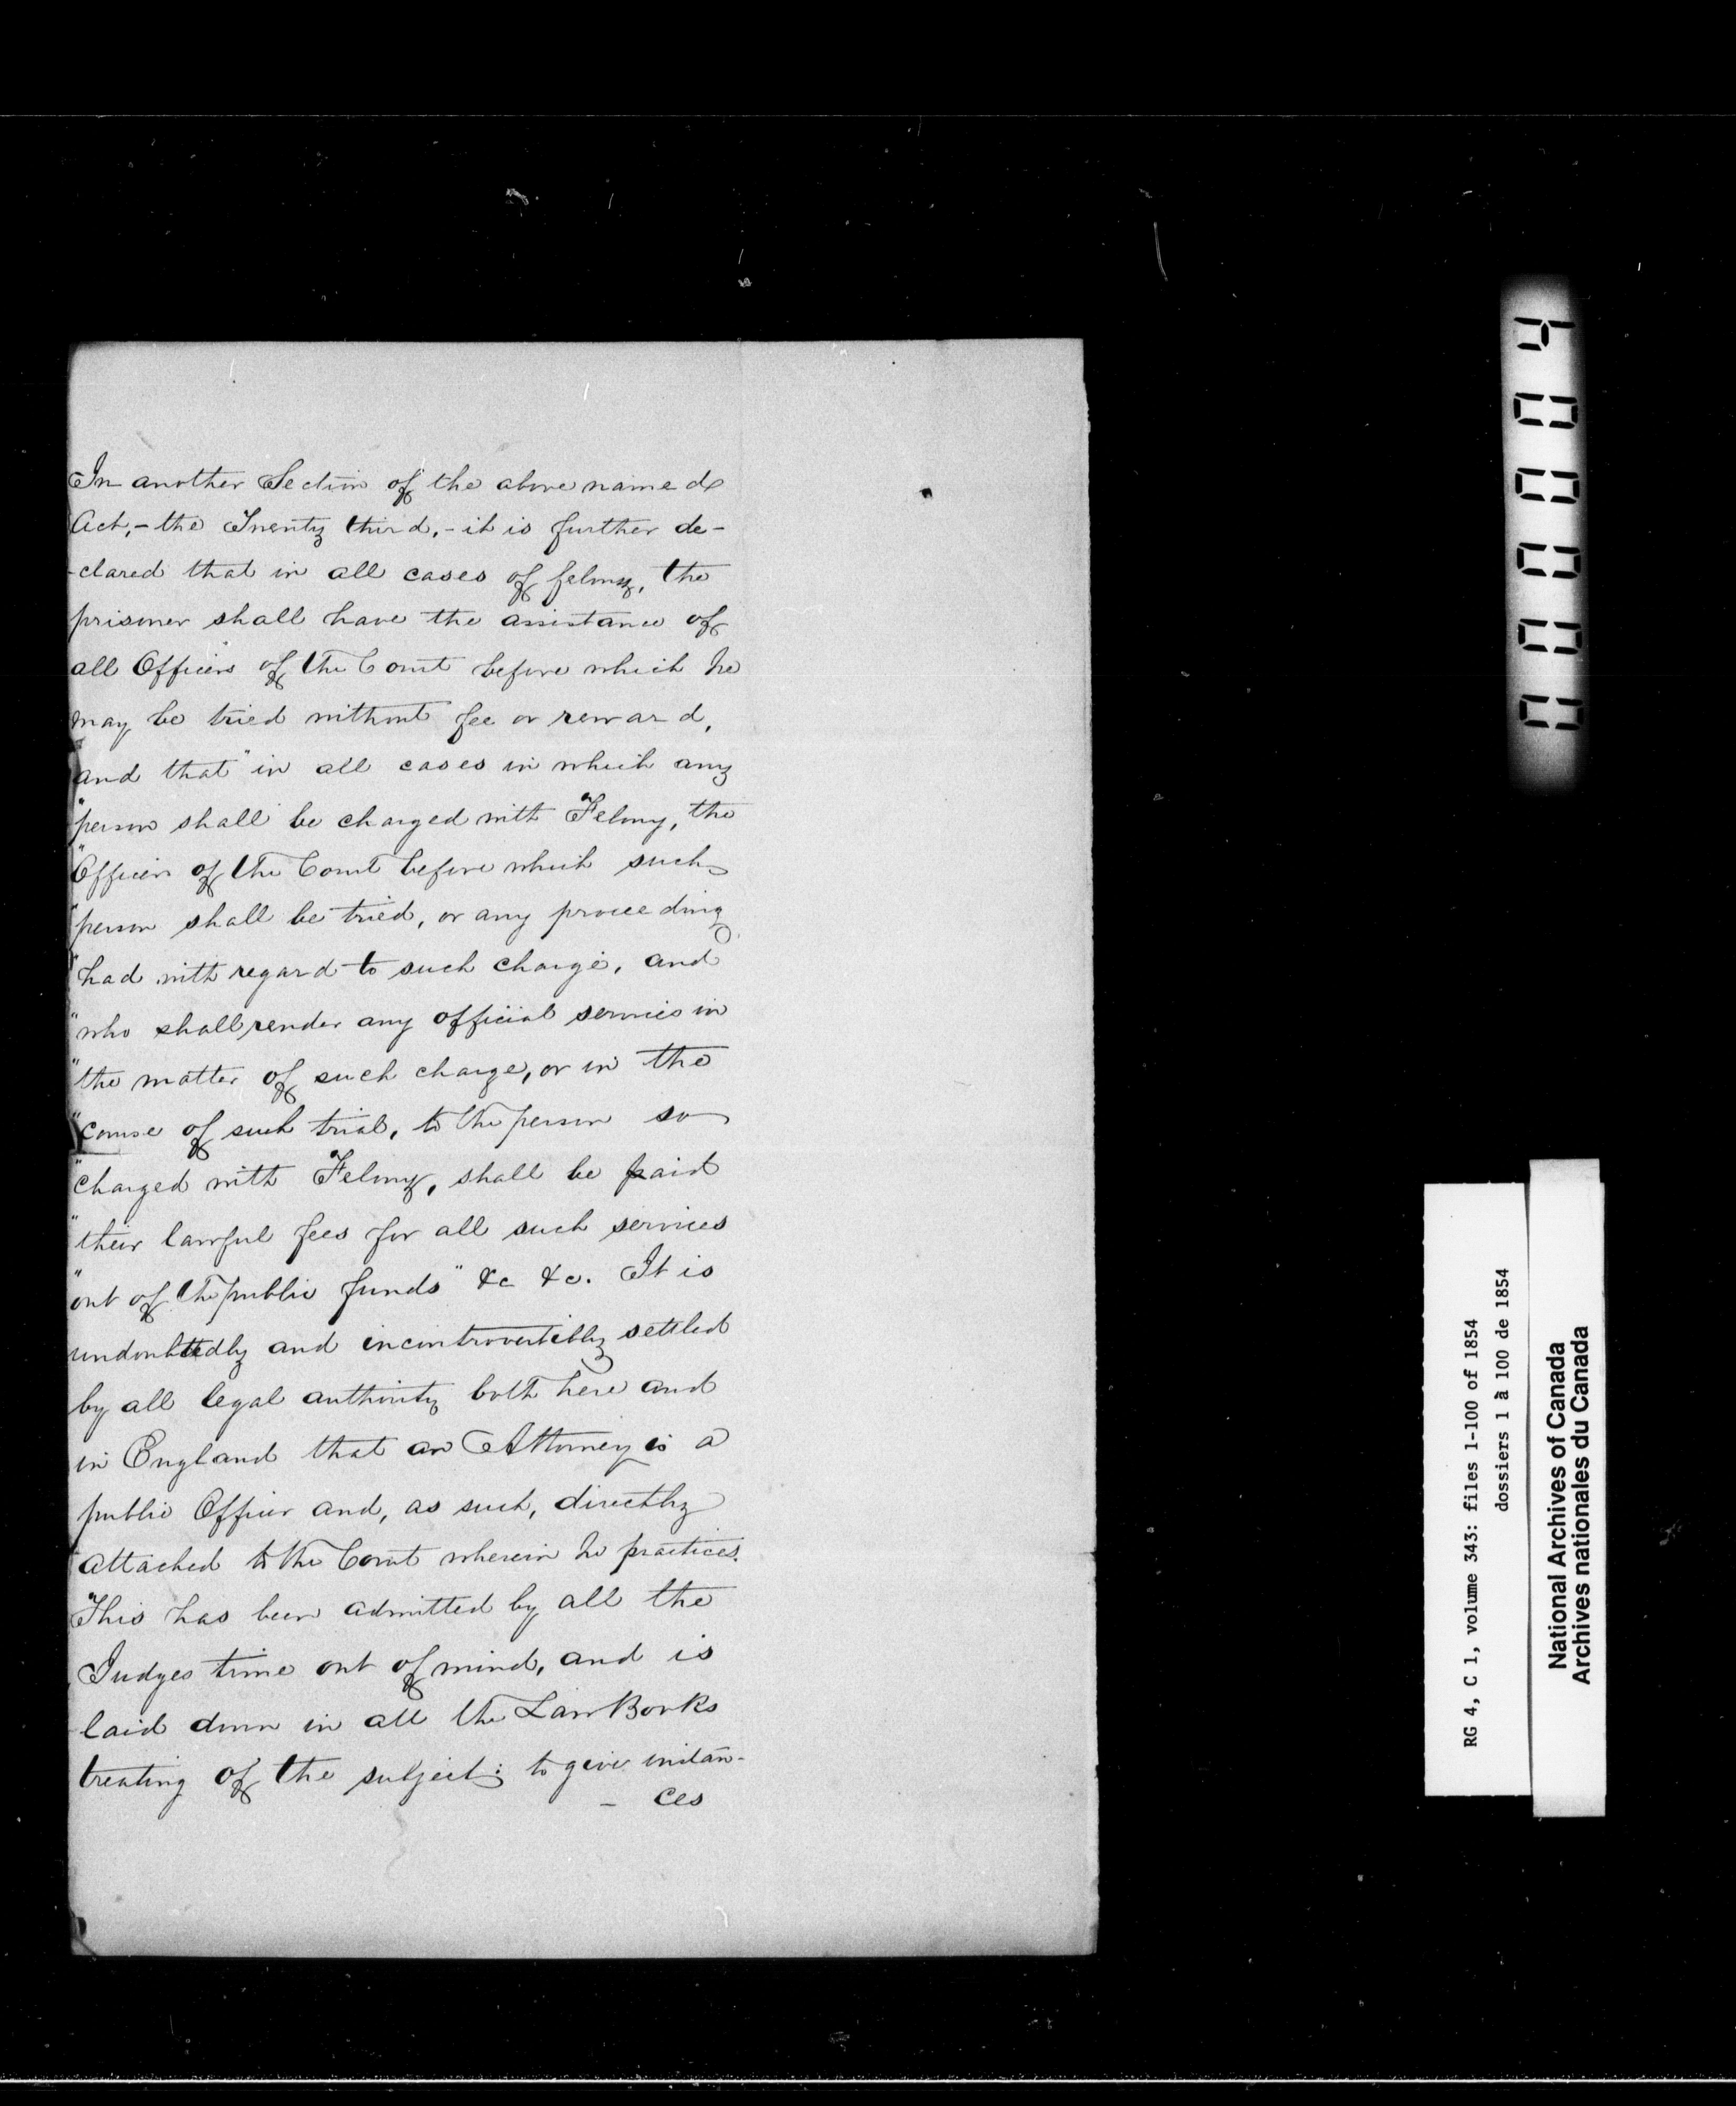 In another Section of the above named
Act,- the Twenty third,- it is further de-
-clared that in all cases of felony, the
prisoner shall have the assistance of
all Officers of the Court before which he
may be tried without fee or reward,
and that "in all cases in which any
"person shall be charged with Felony, the
"Officers of the Court before which such
"person shall be tried, or any proceeding
"had with regard to such charge, and
"who shall render any official services in
"the matter of such charge, or in the
"course of such trial, to the person so
"charged with Felony, shall be paid
"their lawful fees for all such services
"out of the public funds" &c &c. It is
undoubtedly and incontrovertibly settled
by all legal authority both here and
in England that an Attorney is a
public Officer and, as such, directly
attached to the Court wherein he practices.
This has been admitted by all the
Judges time out of mind, and is
laid down in all the Law Books
treating of the subject: to give instan-
- ces
000004
RG 4, C 1, volume 343: files 1-100 of 1854
dossiers 1 à 100 de 1854
National Archives of Canada
Archives nationales du Canada